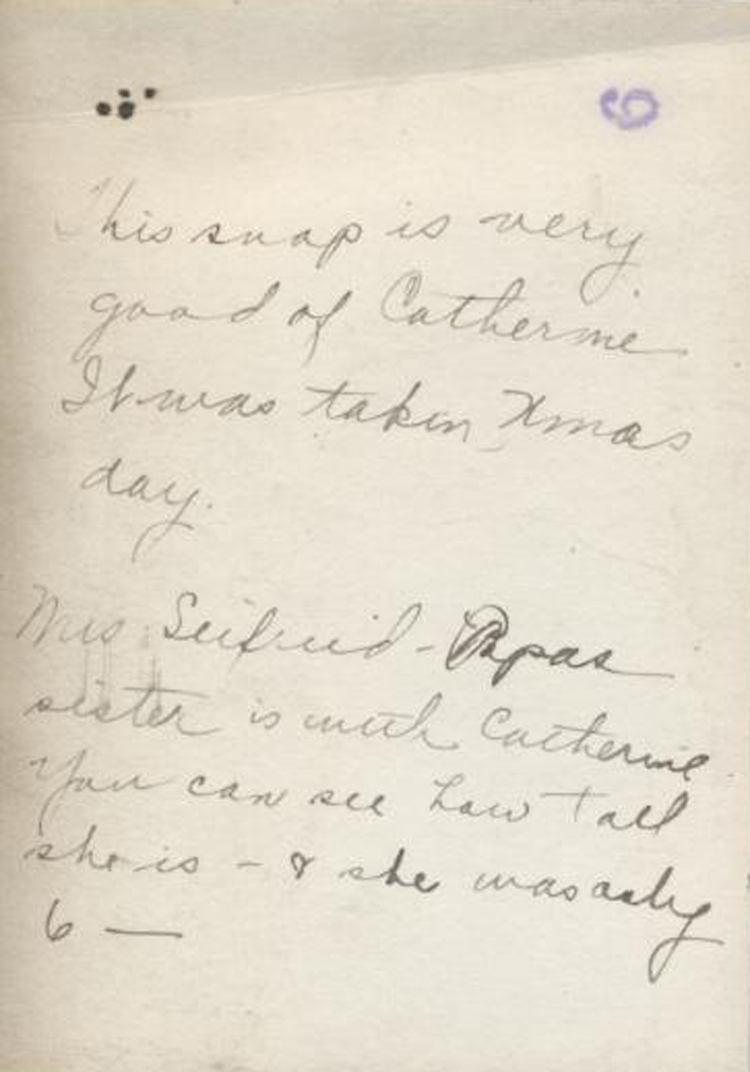 6
This snap is very
good of Catherine
It was taken Xmas
day.
Mrs Seifreid - Papas
sister is with Catherine
You can see how tall
she is - & she was only
6 —